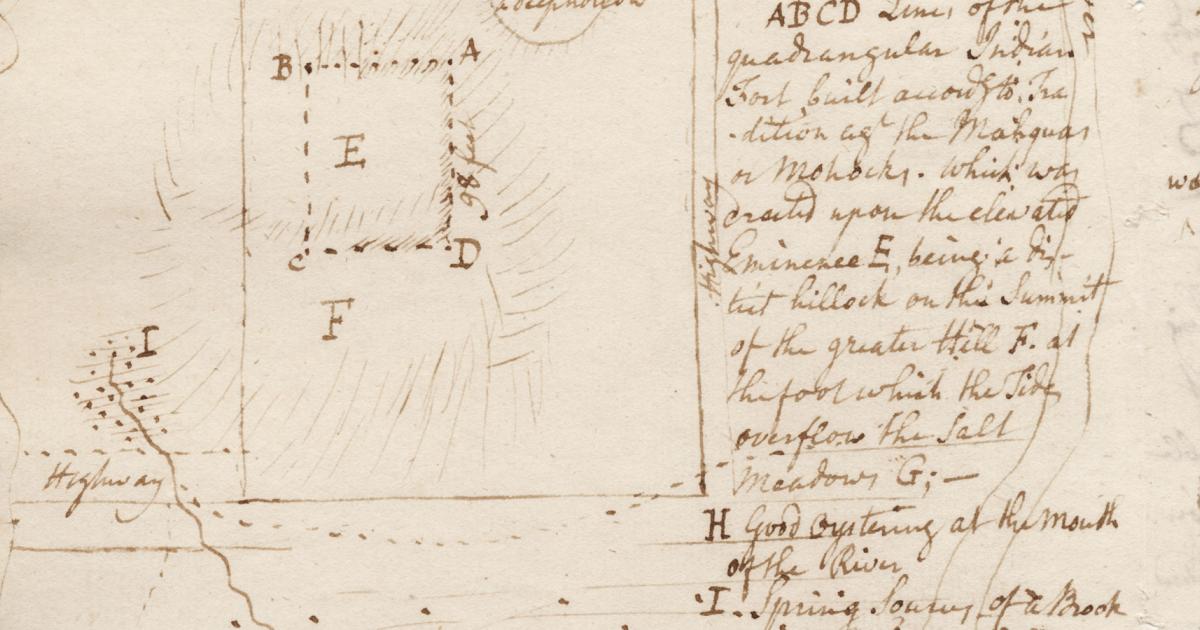 B
A
E
98 feet
C
D
F
I
Highway
Highway
ABCD Lines of the
quadrangular Indian
Fort, built accordg to Tra
-dition agt the Mahquas
or Mohocks. which was
erected upon the elevated
Eminence E, being a dis-
tict hillock on the Summit
of the greater Hill F. at
the foot which the Tide
overflow the Salt
Meadows G; —
H Good Oystering at the Mouth
of the River
I. Spring Source of a Brook